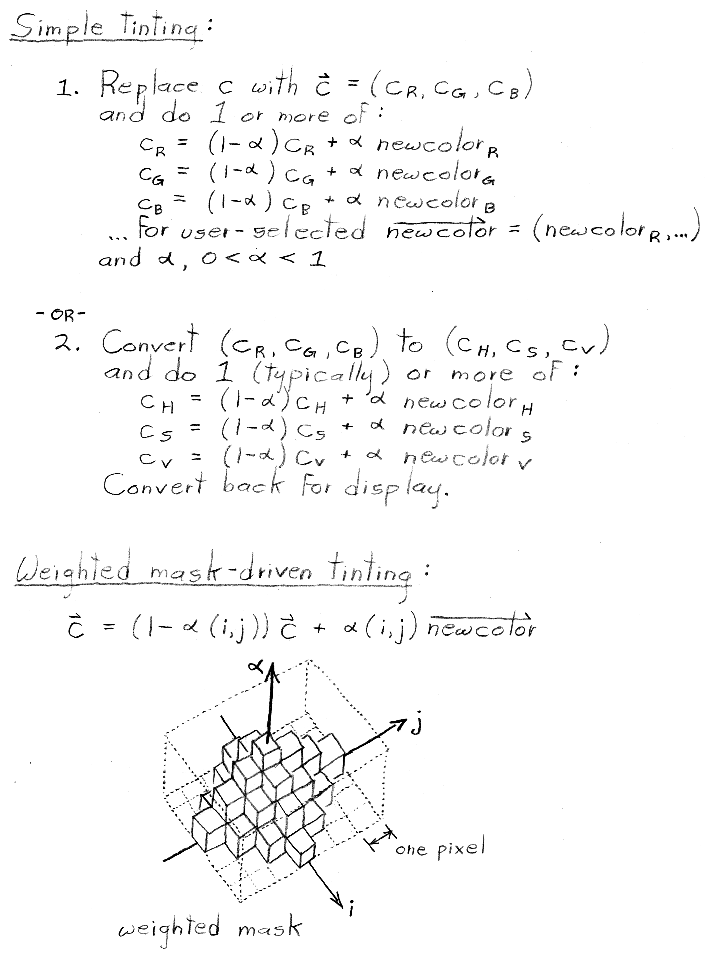 Simple Tinting:
1. Replace c with c⃗ = (C_R, C_G, C_B)
and do 1 or more of:
C_R = (1-α) C_R + α newcolor_R
C_G = (1-α) C_G + α newcolor_G
C_B = (1-α) C_B + α newcolor_B
... for user-selected newcolor⃗ = (newcolor_R,...)
and α, 0 < α < 1
-OR-
2. Convert (C_R, C_G, C_B) to (C_H, C_S, C_V)
and do 1 (typically) or more of:
C_H = (1-α) C_H + α newcolor_H
C_S = (1-α) C_S + α newcolor_S
C_V = (1-α) C_V + α newcolor_V
Convert back for display.
Weighted mask-driven tinting:
c⃗ = (1-α(i,j)) c⃗ + α(i,j) newcolor⃗
α
j
one pixel
i
weighted mask